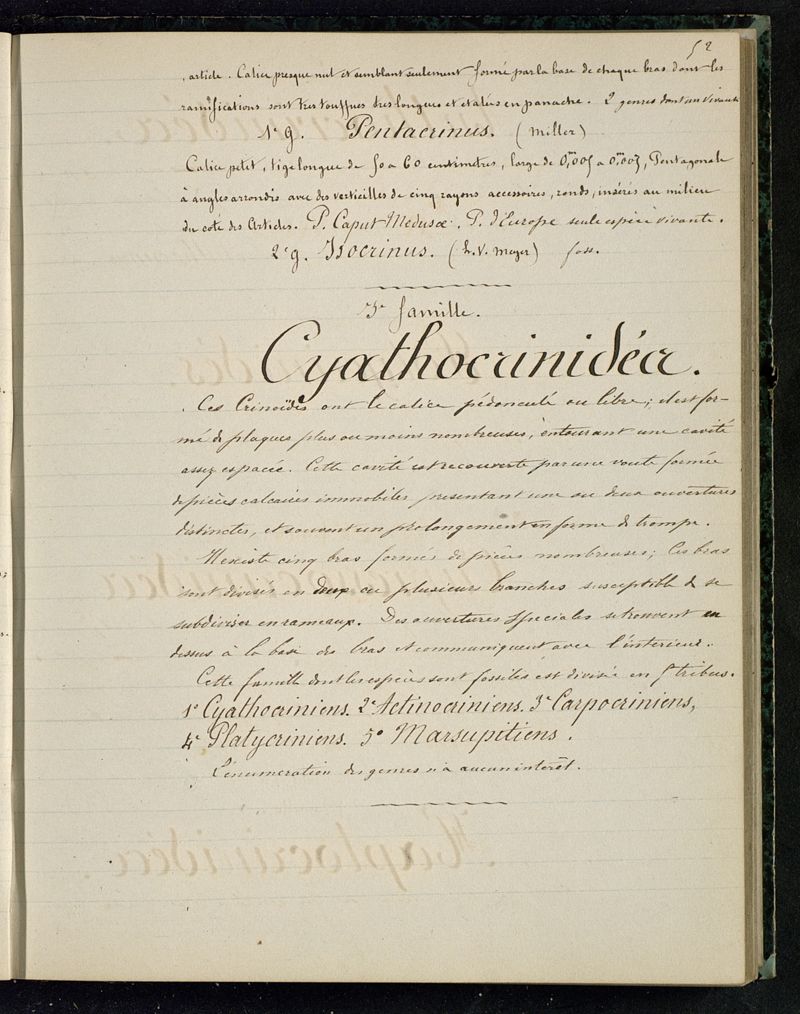 52
article. Calice presque nul et semblant seulement formé par la base de chaque bras dont les
ramifications sont tres touffues tres longues et etalées en panache. 2 genres dont un vivant
1er g. Pentacrinus. (Miller)
Calice petit, tige longue de 50 a 60 centimètres, large de 0,m005 a 0,m003, Pentagonale
à angles arrondis avec des verticilles de cinq rayons accessoires, ronds, insérés au milieu
du coté des Articles. P. Caput Medusæ. P. d'Europe seule espèce vivante.
2e g. Isocrinus. (h. V. Meyer) foss.
5e famille.
Cyathocrinidéa.
Ces Crinoïdes ont le calice pédonculé ou libre; il est for-
mé de plaques plus ou moins nombreuses, entourrant une cavité
assez espacée. Cette cavité est recouverte par une voute formée
de pièces calcaires immobiles presentant une ou deux ouvertures
distinctes, et souvent un prolongement en forme de trompe.
Il existe cinq bras formés de pièces nombreuses; Ces bras
sont divisés en deux ou plusieurs branches susceptible de se
subdiviser en rameaux. Des ouvertures speciales se trouvent en
dessus à la base des bras et communiquent avec l'interieur.
Cette famille dont les espèces sont fossiles est divisée en 5 tribus.
1e Cyathocriniens. 2e Actinocriniens. 3e Carpocriniens,
4e Platycriniens. 5o Marsupitiens.
L'énumeration des genres n'a aucun interêt.